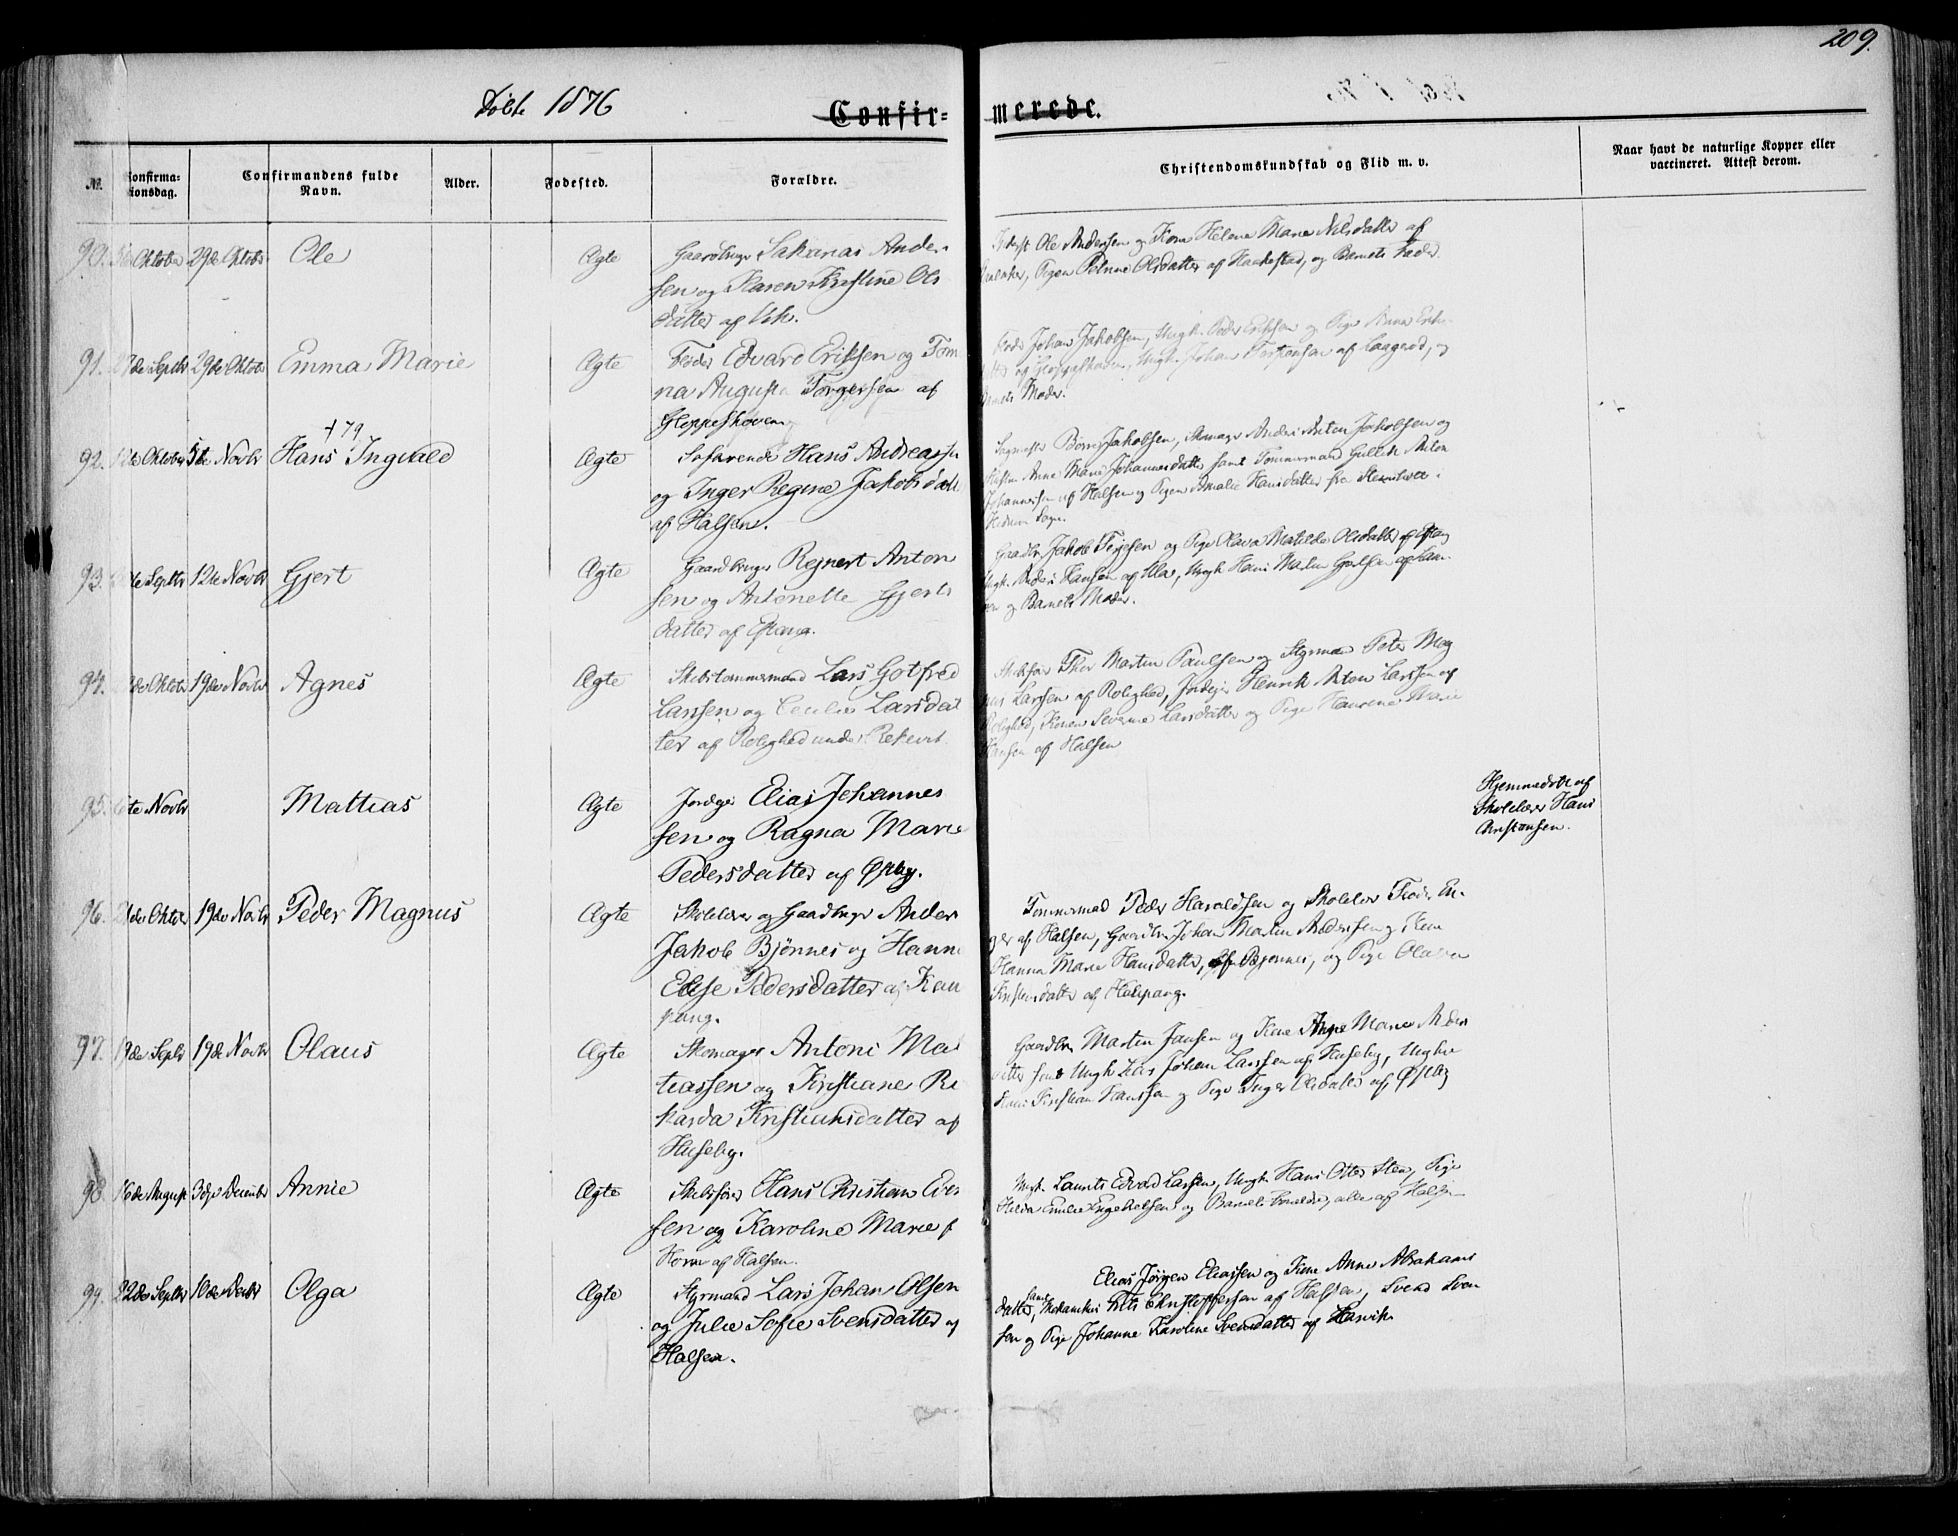 209.
Døbte 1876
Confir-
merede.
No.
Confirma-
tionsdag.
Confirmandens fulde
Navn.
Alder.
Fødested.
Forældre.
Christendomskundskab og Flid m. v.
Naar havt de naturlige Kopper eller
vaccineret. Attest derom.
90. Oktober 29de Oktober Ole Ægte Gaardbruger Sakarias Ander-
sen og Karen Kristine Ols
datter af Vik.
Ole Andersen og Kone Helene Marie Nilsdatter af
Pigen Petrine Olsdatter af Haakestad, og Barnets Fader
91. Septbr 29de Oktobr Emma Marie Ægte Edvard Eriksen og Tom
na Augusta Torgersen af
Gloppeskoven
Johan Jakobsen, Ungk. Peder Eriksen og Pige Anna
og Gloppeskoven, Ungk. Johan af Laagerød, og
Barnets Moder.
92. 12te Oktober 5te Novbr Hans Ingvald Ægte Søfarende Hans Andreassen
† 79
og Inger Regine Jakobsdatt
af Halsen.
Jakobsen, Skomager Anders Anton Jakobsen og
Anne Marie Johannesdatter samt Tømmermand Gullik Anton
Johannesen af Halsen og Pigen Amalie Hansdatter fra
Hedrum Sogn.
93. Septbr 12te Novbr Gjert Ægte Gaardbruger Regnert Anton
sen og Antonette Gjerts
datter af Østang.
Gaardbr Jakob Terjesen og Pige Olava Matilde Olsdatter af Østang
Ungk. Anders Hansen af Ula, Ungk Hans Martin Gjertsen af
og Barnets Moder.
94. Oktobr 19de Novbr Agnes Ægte Skibstømmermand Lars Gotfred
Larssen og Cecilie Larsdat
ter af Rolighed under Rekevik
Thor Martin Paulsen og Styrmand Peter Mag
nus Larssen af Rolighed, Jordeier Henrik Anton Larssen af
Rolighed, Konen Severine Larsdatter og Pige Hansine Marie
Hansen af Halsen
95. 6te Novbr Mattias Ægte Jordeier Elias Johannes
sen og Ragna Marie
Pedersdatter af Østby.
Hjemmedøbt af
Skolelærer Hans
Kristansen.
96. 21de Oktbr 19de Novbr Peder Magnus Ægte Skolelærer og Gaardbruger Anders
Jakob Bjønnes og Hanna
Elise Pedersdatter af Kau
pang.
Tømmermand Peder Haraldsen og Skolelær
af Halsen, Gaardbr Johan Martin Andersen og Kone
Hanna Marie Hansdatter, af Bjønnes, og Pige Olava
Kristensdatter af Kaupang.
97. 19de Septbr 19de Novbr Olaus Ægte Skomager Antoni Mat
tiassen og Kristiane Ri
karda Kristiansdatter af
Huseby.
Gaardbr Martin Jansen og Kone Anne Marie Anders
datter samt Ungk Lars Johan Larssen af Huseby, Ungkar
Hans Kristian Hanssen og Pige Inger Olsdatter af Østby
98. 16de August 3die December Annie Ægte Skibsfører Hans Christian Ever
sen og Karoline Marie f
Horn af Halsen.
Ungk. Laurits Edvard Larssen, Ungk Hans Otter Steen, Pige
Hilda Emilie Engebretsen og Barnets Forældre, alle af Halsen
99. 22de Septbr 10de Decbr Olga Ægte Styrmand Lars Johan Olsen
og Julie Sofie Svensdatter af
Halsen.
Elias Jørgen Eliassen og Kone Anne Abrahams
datter, samt Nils Christoffersen af Halsen, Svend Sven
sen og Pige Johanne Karoline Svensdatter af Larvik